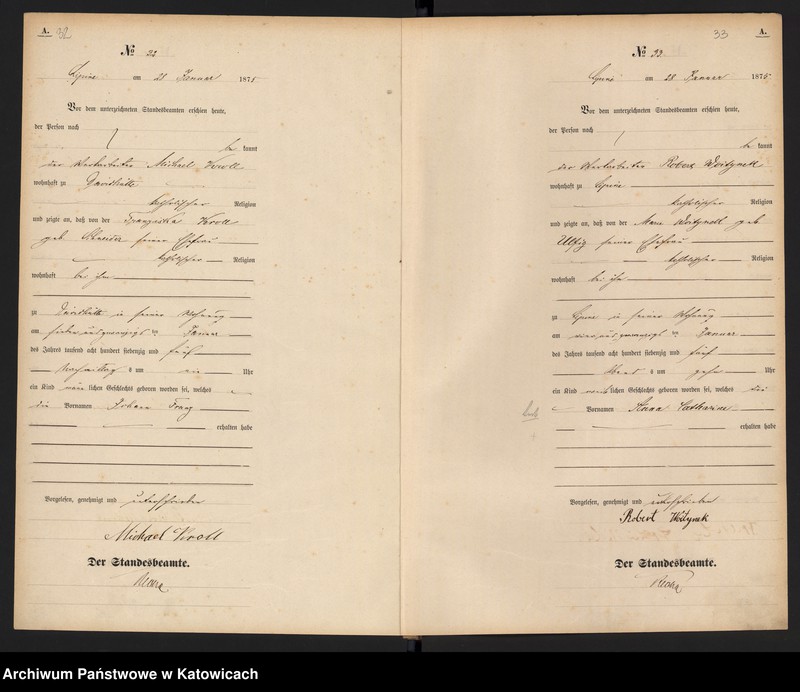 A. 32
№ 32
Lipine am 28 Januar 1875
Vor dem unterzeichneten Standesbeamten erschien heute,
der Person nach
be kannt
der Michael Kroll
wohnhaft zu Davidhütte
katholischer Religion
und zeigte an, daß von der Franziska Kroll
geb. Schneider seiner Ehefrau
katholischer Religion
wohnhaft bei ihm
zu Davidhütte in seiner Wohnung
am sieben und zwanzigsten Januar
des Jahres tausend acht hundert siebenzig und fünf
Nachmittag s um ein Uhr
ein Kind männ lichen Geschlechts geboren worden sei, welches
die Vornamen Johann Franz
erhalten habe
Vorgelesen, genehmigt und unterschrieben
Michael Kroll
Der Standesbeamte.
33 A.
№ 33
Lipine am 28 Januar 1875
Vor dem unterzeichneten Standesbeamten erschien heute,
der Person nach
be kannt
der Robert Woitynek
wohnhaft zu Lipine
katholischer Religion
und zeigte an, daß von der Marie Woitynek geb
seiner Ehefrau
katholischer Religion
wohnhaft bei ihm
zu Lipine in seiner Wohnung
am vier und zwanzigsten Januar
des Jahres tausend acht hundert siebenzig und fünf
Abend s um zehn Uhr
ein Kind weib lichen Geschlechts geboren worden sei, welches die
Vornamen Anna Catharine
erhalten habe
Vorgelesen, genehmigt und unterschrieben
Robert Woitynek
Der Standesbeamte.
Archiwum Państwowe w Katowicach